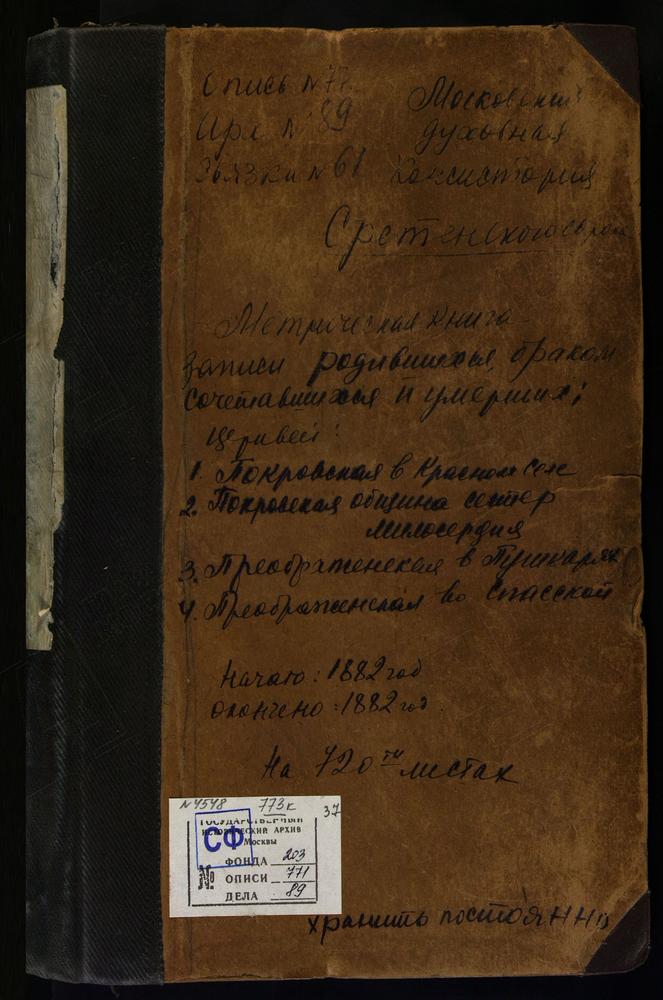 Опись №77
Арх. № 89
Связки № 61
Московский
духовная
Консистория
Сретенского сорок
Метрическая книга
записи родившихся, браком
сочетавшихся и умерших;
церквей:
1. Покровская в Красном селе
2. Покровская община сестер
милосердия
3. Преображенская в Пушкарях
4. Преображенская во Спасской
Начато: 1882 год
окончено: 1882 год.
На 720ти листах
№4548 773к 37
ГОСУДАРСТВЕННЫЙ
ИСТОРИЧЕСКИЙ АРХИВ
Москвы
СФ
ФОНДА 203
№ ОПИСИ 771
ДЕЛА 89
хранить постоянно